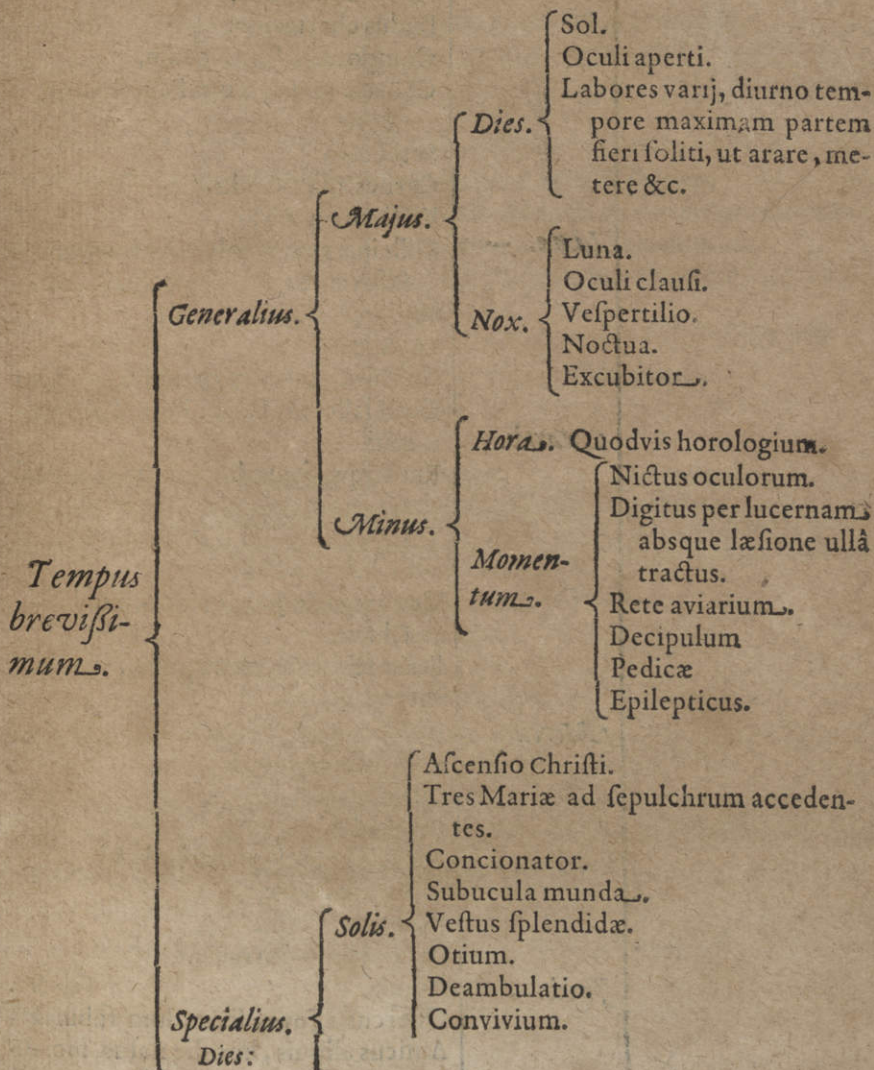 Tempus
breviſſi-
mum.
Generalius.
Majus.
Dies.
Sol.
Oculi aperti.
Labores varij, diurno tem-
pore maximam partem
fieri ſoliti, ut arare, me-
tere &c.
Nox.
Luna.
Oculi clauſi.
Veſpertilio.
Noctua.
Excubitor.
Minus.
Hora. Quodvis horologium.
Momen-
tum.
Nictus oculorum.
Digitus per lucernam
abſque læſione ullâ
tractus.
Rete aviarium.
Decipulum
Pedicæ
Epilepticus.
Specialius.
Dies:
Solis.
Aſcenſio Chriſti.
Tres Mariæ ad ſepulchrum acceden-
tes.
Concionator.
Subucula munda.
Veſtus ſplendidæ.
Otium.
Deambulatio.
Convivium.